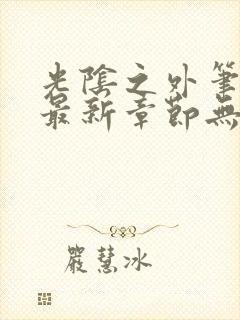 光陰之外筆
最新章節無
嚴慧冰